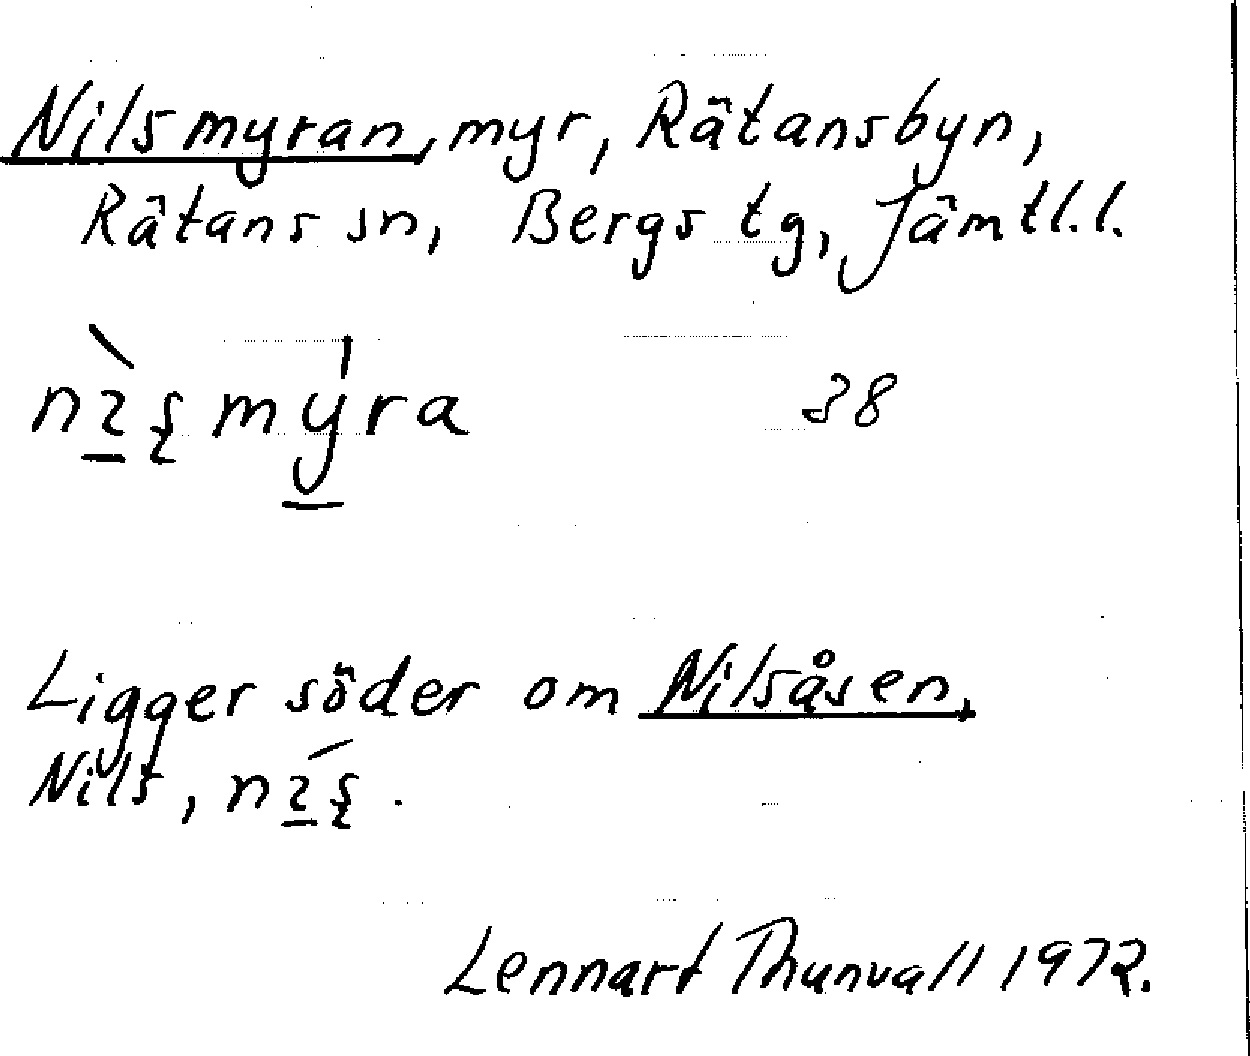 Nilsmyran, myr, Rätansbyn,
Rätans sn, Bergs tg, Jämtl.l.
38
Ligger söder om Nilsåsen.
Nils,
Lennart Thunvall 1972.